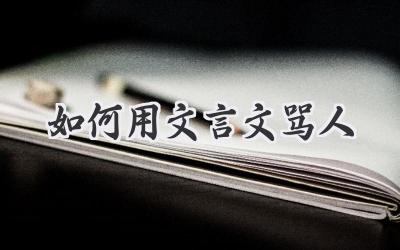 如何用文言文骂人